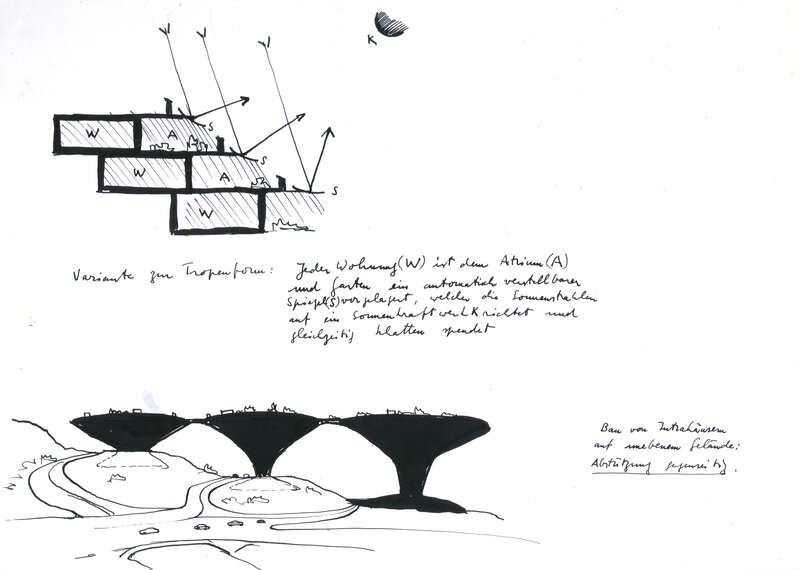 K
S
W
A
S
W
A
S
W
Variante zur Tropenform: Jeder Wohnung (W) ist dem Atrium (A)
und Garten ein automatisch verstellbarer
Spiegel (S) vorgelagert, welcher die Sonnenstrahlen
auf ein Sonnenkraftwerk K richtet und
gleichzeitig Schatten spendet
Bau von Intrahäusern
auf unebenem Gelände:
Abstützung gegenseitig.